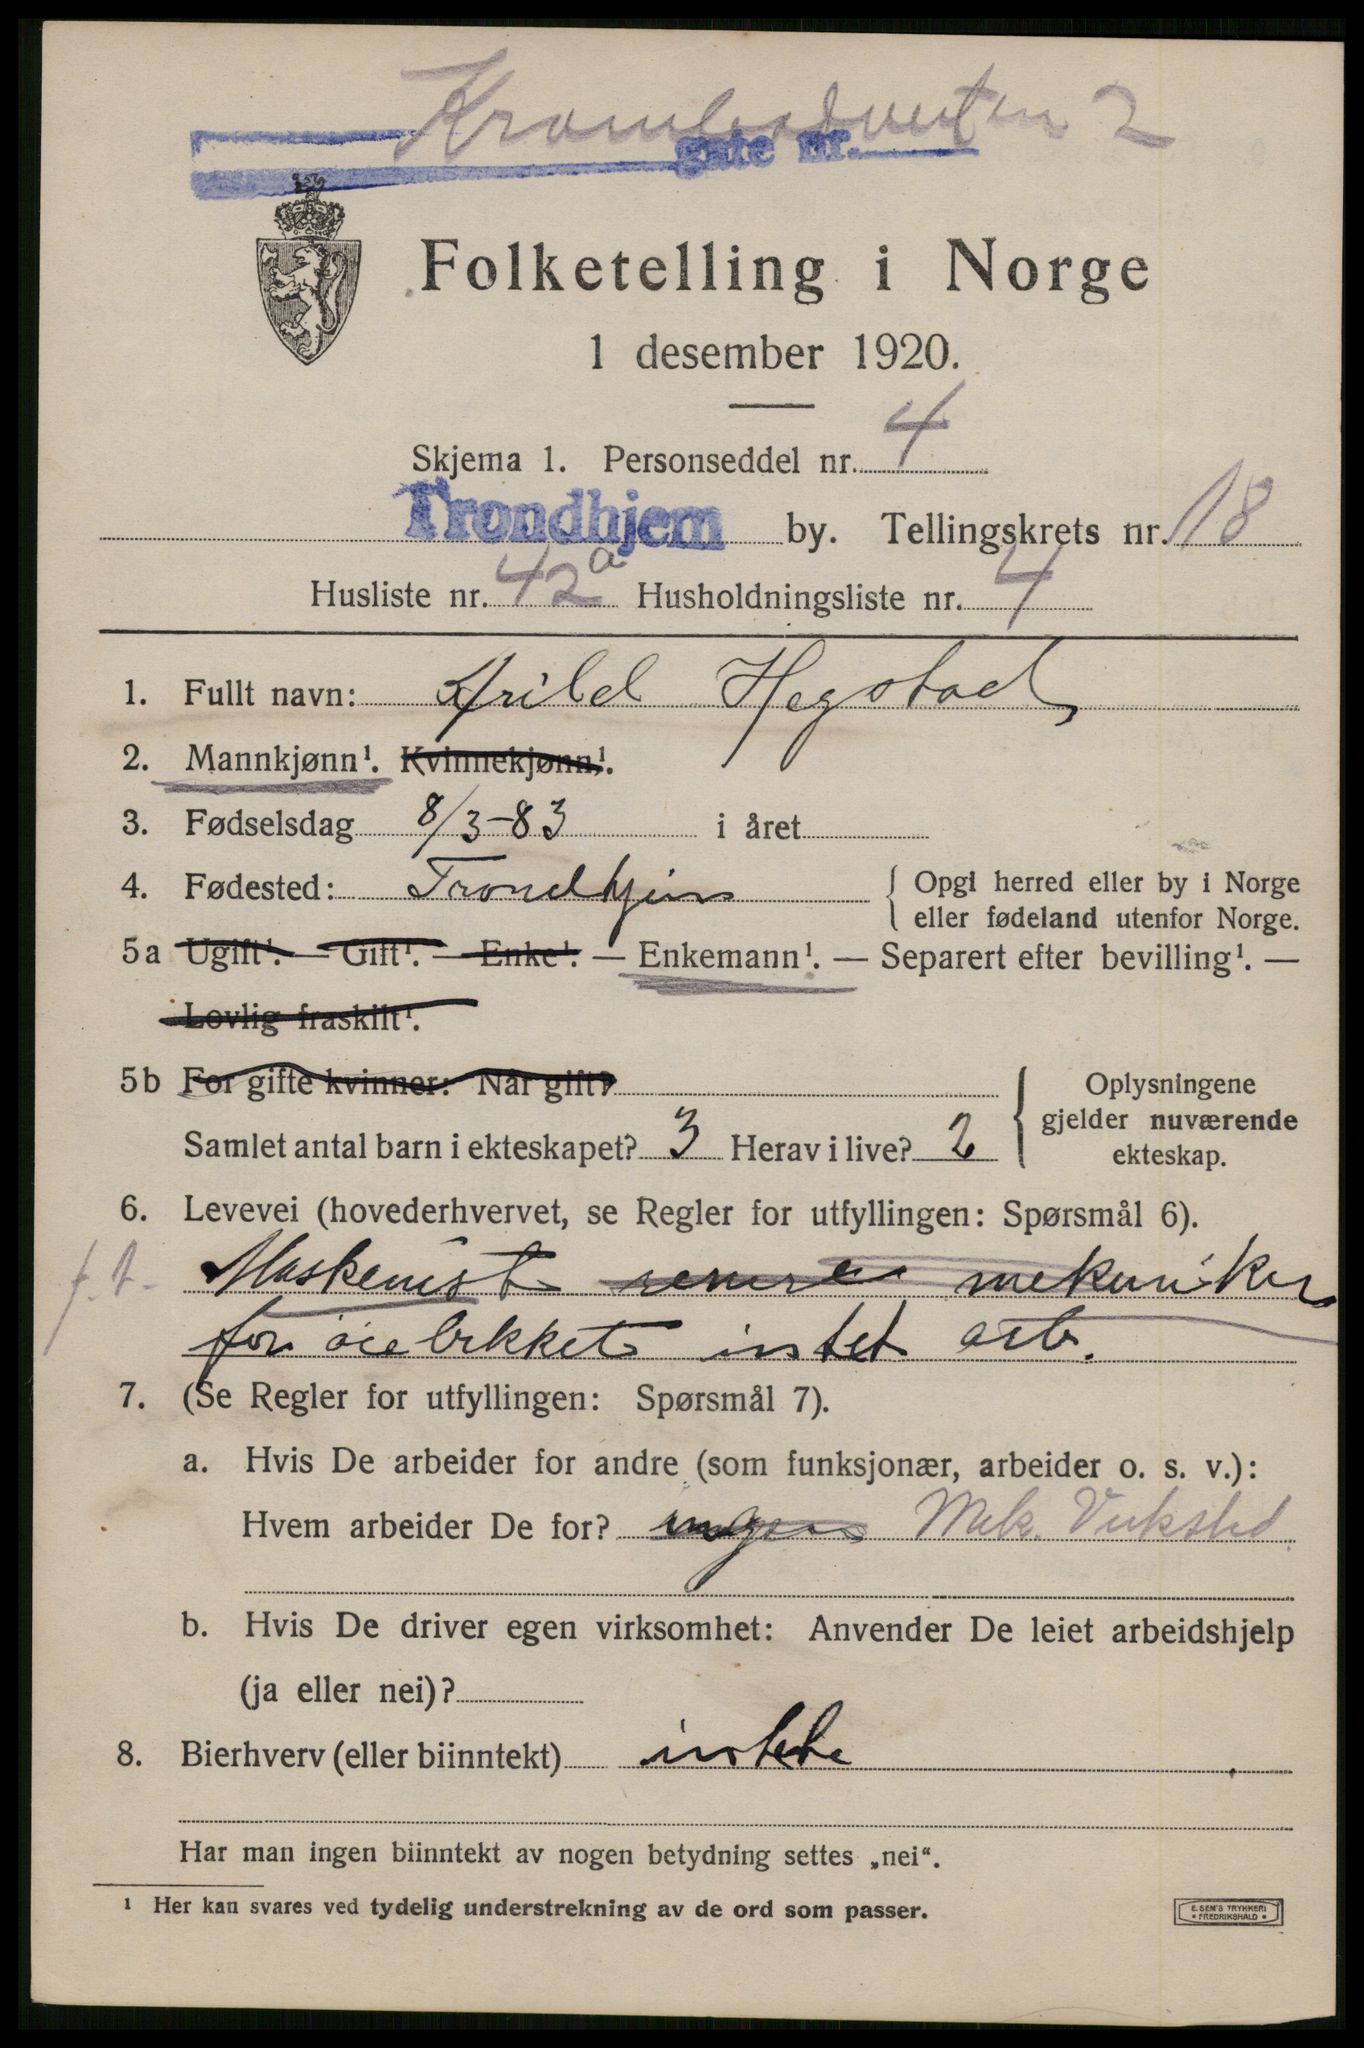 Krambodveiten 2
gate nr.
Folketelling i Norge
1 desember 1920.
Skjema 1. Personseddel nr. 4
Trondhjem by. Tellingskrets nr. 18
Husliste nr. 42a Husholdningsliste nr. 4
1. Fullt navn: Arild Hegstad
2. Mannkjønn¹. Kvinnekjønn¹.
3. Fødselsdag 8/3-83 i året
4. Fødested: Trondhjem { Opgi herred eller by i Norge
eller fødeland utenfor Norge.
5a Ugift¹. — Gift¹. — Enke¹. — Enkemann¹. — Separert efter bevilling¹. —
Lovlig fraskilt¹.
5b For gifte kvinner: Når gift?
Samlet antal barn i ekteskapet? 3 Herav i live? 2
{ Oplysningene
gjelder nuværende
ekteskap.
6. Levevei (hovederhvervet, se Regler for utfyllingen: Spørsmål 6).
f.t. Maskenist mekaniker
for øieblikket intet arb.
7. (Se Regler for utfyllingen: Spørsmål 7).
a. Hvis De arbeider for andre (som funksjonær, arbeider o. s. v.):
Hvem arbeider De for? ingen Mek. Verksted
b. Hvis De driver egen virksomhet: Anvender De leiet arbeidshjelp
(ja eller nei)?
8. Bierhverv (eller biinntekt) intet
Har man ingen biinntekt av nogen betydning settes „nei“.
¹ Her kan svares ved tydelig understrekning av de ord som passer.
E. SEM'S TRYKKERI
• FREDRIKSHALD •